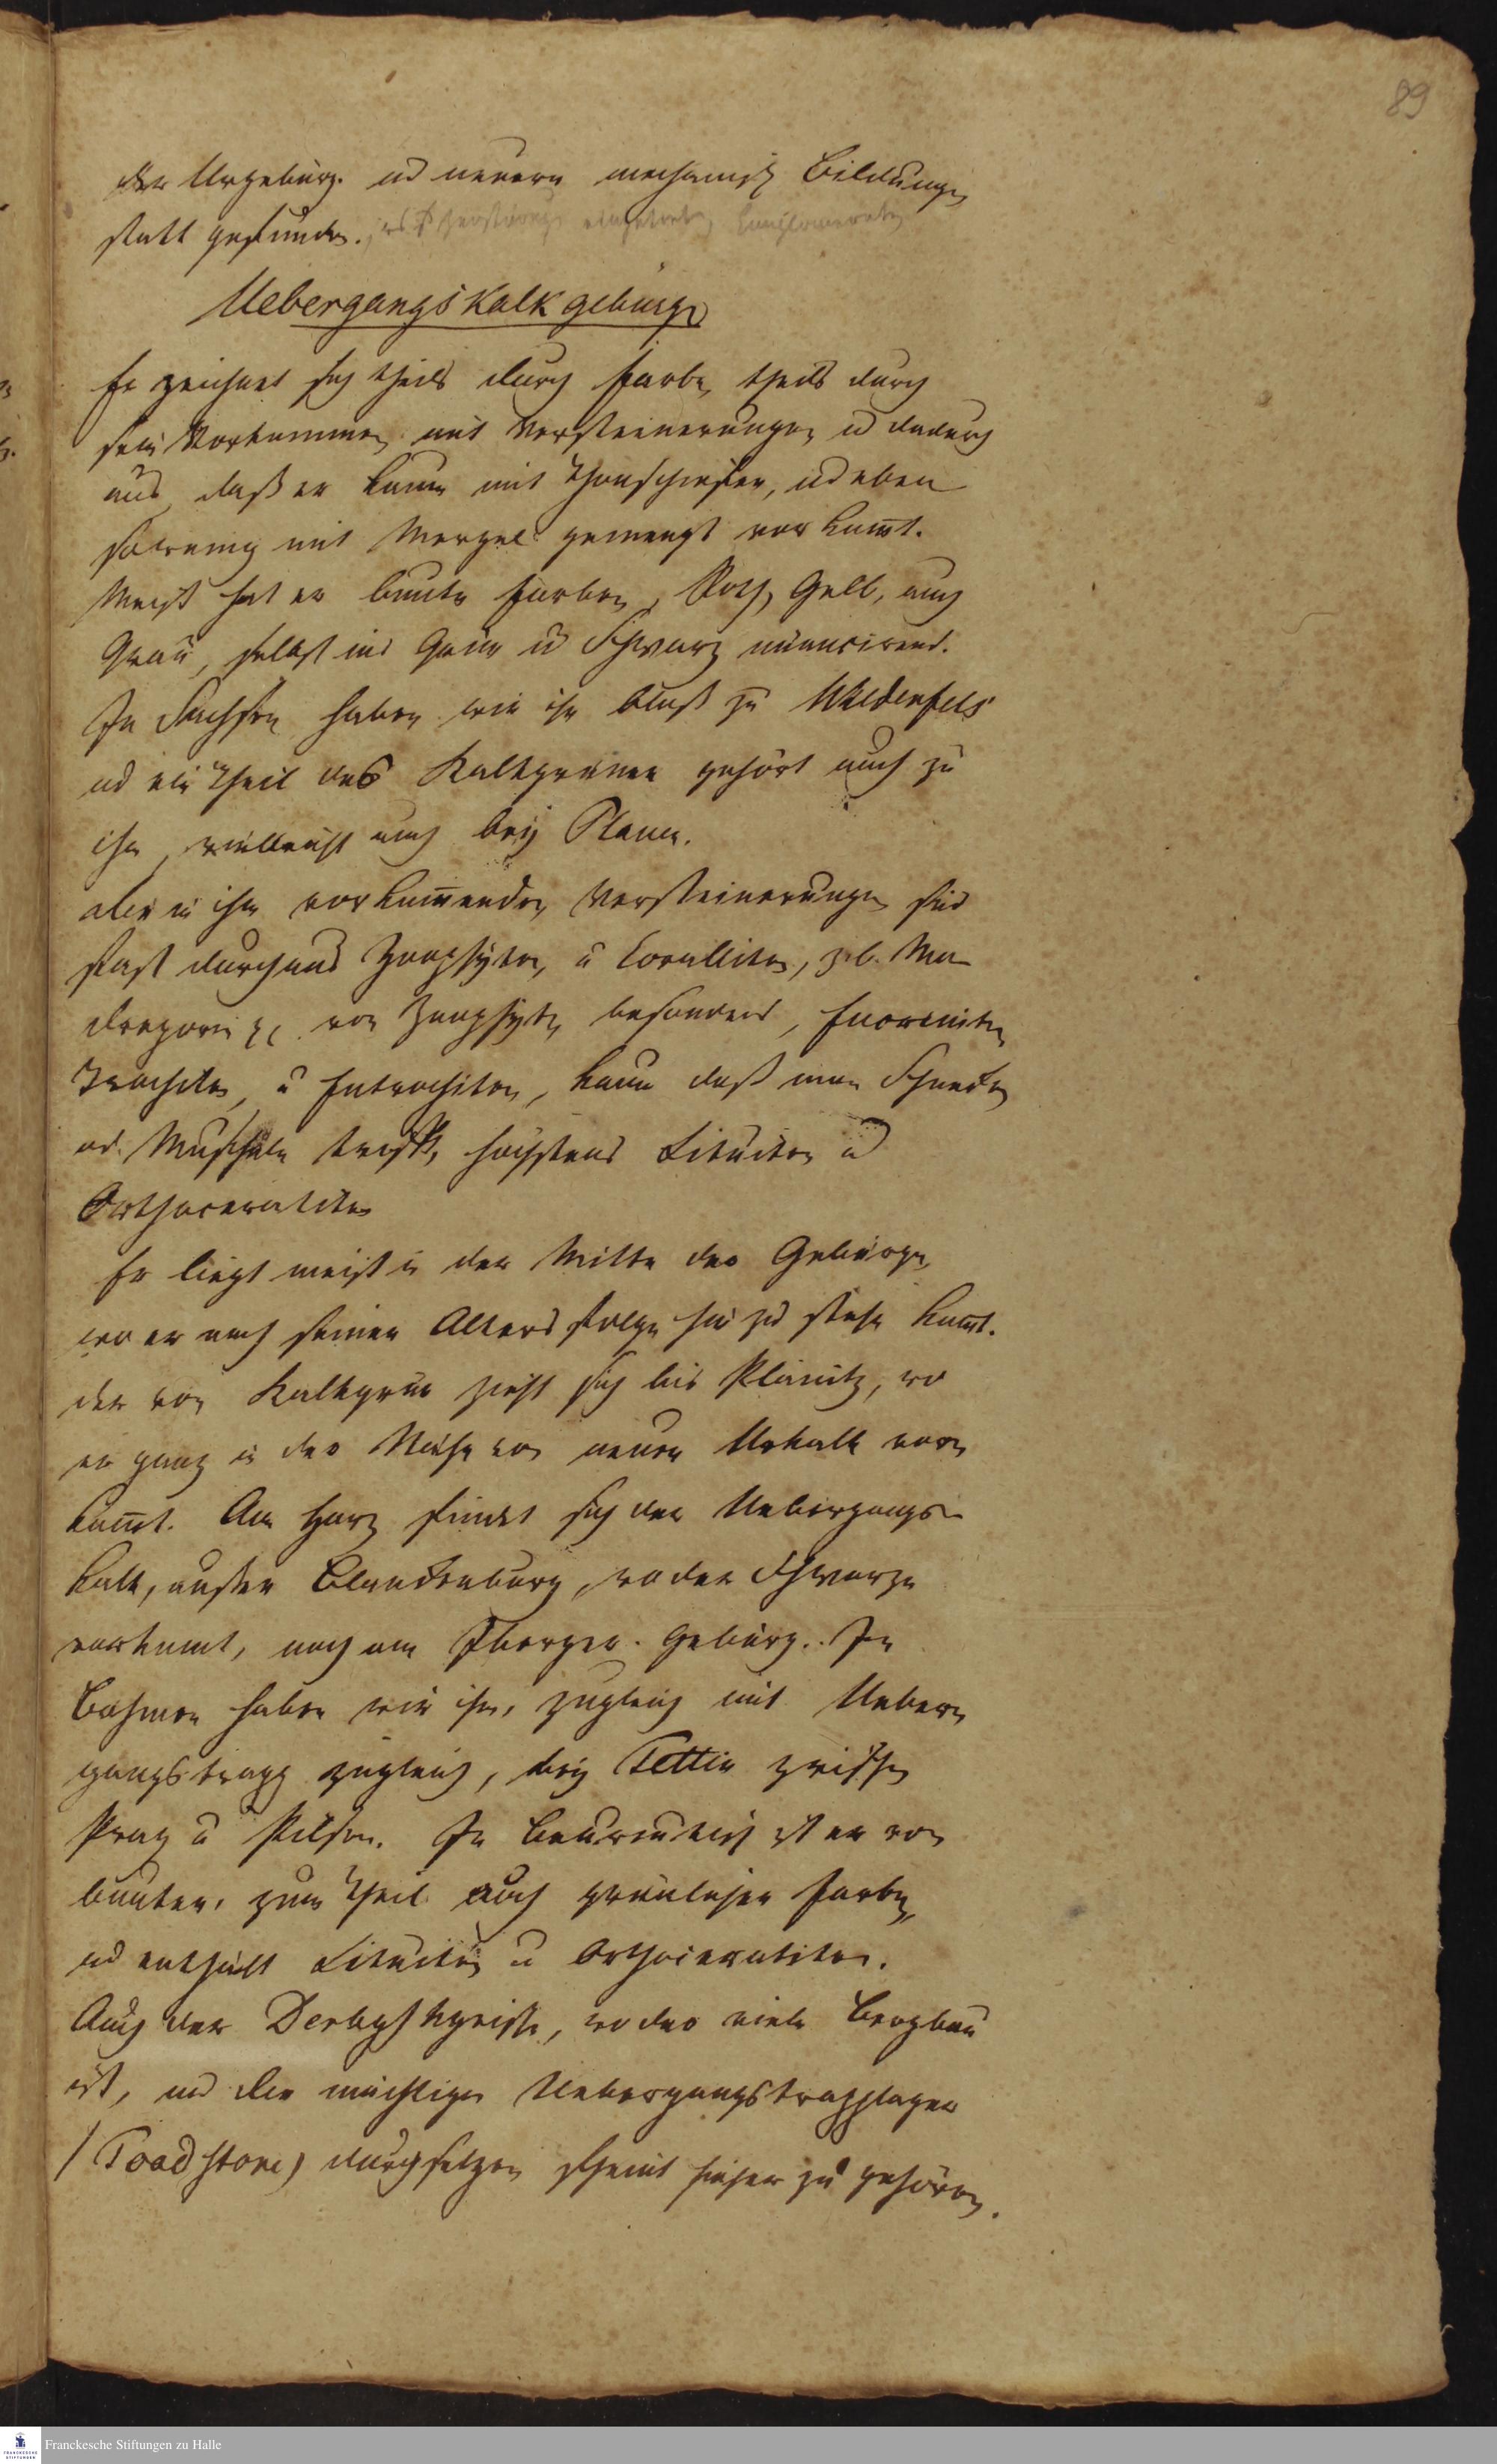 89
der Urgebürg. ud neuern mechanisch Bildungen
statt gefunden.
Uebergangskalkgebürge
Er zeichnet sich theils durch Farbe, theils durch
sein Vorkommen mit Versteinerungen u dadurch
aus daß er kaum mit Thonschiefer, ud eben
sowenig mit Mergel gemengt vor kumt.
Meist hat er bunte Farben, Roth, Gelb, auch
Grau, selbst ins Grün u Schwarz nuancirend.
In Sachsen haben wir ihn bloß zu Wildenfels
ud ein Theil des Kalkgrüner gehört auch zu
ihm, vielleicht auch bey Plauen.
alle in ihm vorkumenden Versteinerungen sind
fast durchaus Zoophyten, u Coralliten, z.b. Ma
dreporen pp von Zoophyten besonders, Encriniten
Trochiten, u Entrochiten, kaum daß man Schnecken
od. Muscheln trifft, höchstens Lituiten u
Orthoceratiten
Er liegt meist in der Mitte des Gebürges,
wo er nach seiner Altersfolge hin zu stehn kumt.
der von Kalkgrün zieht sich bis Planitz, wo
er ganz in der Nähe von neuen Urkalk vor
kumt. Am Harz findet sich der Uebergangs
kalk, außer Blankenburg, wo der Schwarze
vorkumt, noch am Iberger. Gebürg. In
Böhmen haben wir ihn, zugleich mit Ueber
gangstrapp zugleich, bey Tettin zwischen
Prag u Pilsen. In Baureuthisch ist er von
bunter, zum Theil auch grünlicher Farbe,
ud enthält Lituiten u Orthoceratiten.
Auch der Derbyshyrische, wo der viele Bergbau
ist, ud die mächtigen Uebergangstrapplager
(Toadstone) durchsetzen scheint hieher zu gehören.
Franckesche Stiftungen zu Halle